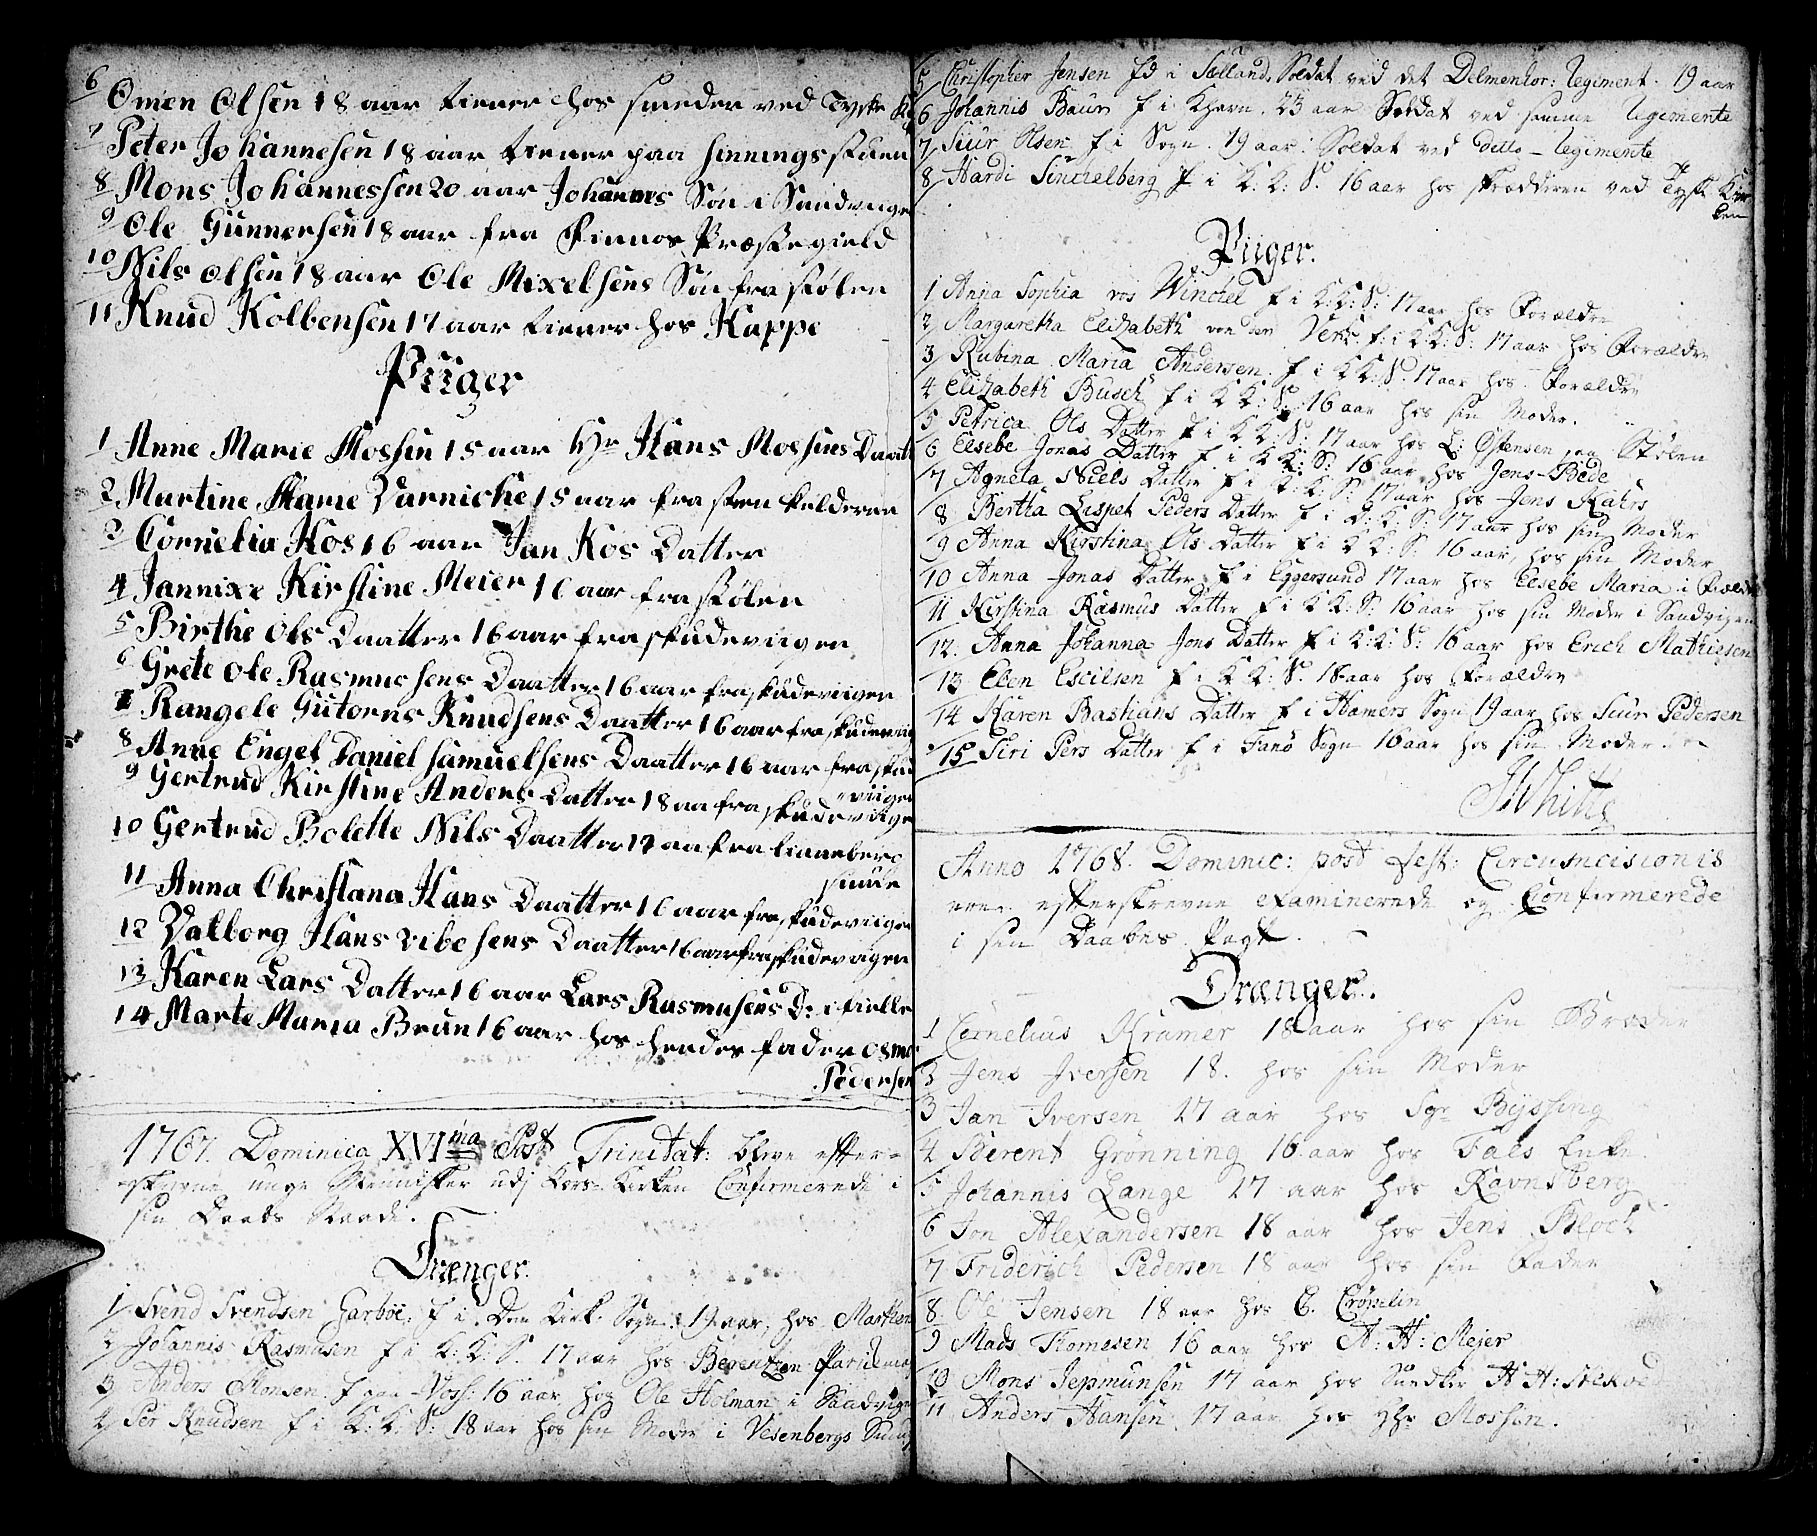 6 Omen Olsen 18 aar tiener hos smeder ved Tyske
7 Peter Johannesen 18 aar tiener paa sinnings stuen
8 Mons Johannessen 20 aar Johannes Søn i Sandvigen
9 Ole Gunnersen 18 aar fra Finnøe Præstegield
10 Nils Olsen 18 aar Ole Mixelsens Søn fra stølen
11 Knud Kolbensen 17 aar tiener hos Kappe
Piiger
1 Anne Marie Mossin 15 aar Hr Hans Mossins Daatt
2 Martine Marie Varnicke 15 aar fra steen kelderen
3 Cornelia Kos 16 aar Jan Kos Datter
4 Jannixe Kirstine Meier 16 aar fra stølen
5 Birthe Ols Daatter 16 aar fra skudeviigen
6 Grete Ole Rasmussens Daatter 16 aar fra skudeviigen
7 Rangele Gutorns Knudsens Daatter 16 aar fra skudeviig
8 Anne Engel Daniel Samuelsens Daatter 16 aar fra skude
viigen
9 Gertrud Kirstine Anders Datter 18 aa fra skudeviige
10 Gertrud Bolette Nils Daatter 17 aa fra finneberg
smule
11 Anna Christana Hans Daatter 16 aar fra skudeviigen
12 Valborg Hans vibesens Daatter 16 aar fra skudeviigen
13 Karen Lars Datter 16 aar Lars Rasmusens D: i fielle
14 Marte Maria Brun 16 aar hos hendes fader Osmo
Pedersen
1767. Dominica XVI ma Post Trinitat: bleve efter-
skrevne unge Mennisker udj Kors-Kirken Confirmerede i
sin Daabs Naade.
Drænger.
1 Svend Svendsen Garboe. f i Dom Kirk. Sogn. 19 aar, hos
2 Johannis Rasmusen f i K: K: S. 17 aar hos Berentzen
3 Anders Monsen. f paa Voss: 16 aar hos Ole Holman i Sandvige
4 Per Knudsen f i K: K: S: 18 aar hos sin Moder i Vesenbergs Smug
5 Christopher Jensen Fd i Sælland. Soldat ved det Delmenhor: Regiment. 19 aar
6 Johannis Baur f i Khavn. 23 aar Soldat ved samme Regimente
7 Siur Olsen f i Sogn. 19 aar. Soldat ved ditto-Regimente
8 Hardi Sinchelberg f i K: K: S. 16 aar hos skrædderen ved Tyske Kir
ken
Piiger.
1 Anna Sophia von Winchel f i K: K: S: 17 aar hos Forældre
2 Margaretha Elizabeth von der f: i K: K: S: 17 aar hos Forældre
3 Rubina Maria Andersen. f i K K: S: 17 aar hos Forældre
4 Elizabeth Busch f i K K: S: 16 aar hos sin Moder.
5 Petrica Ols Datter f i K K: S: 17 aar hos L: Østensen paa Stølen
6 Elsebe Jonas Datter f i K K: S: 16 aar hos Jens Bøde
7 Agneta Niels Datter f i K: K: S: 17 aar hos Jens Rahrs
8 Bertha Lispet Peders Datter f i K: K: S: 17 aar hos sin Moder
9 Anna Kirstina Ols Datter f i K K: S: 16 aar, hos sin Moder
10 Anna Jonas Datter f i Eggersund 17 aar hos Elsebe Maria i
11 Kirstina Rasmus Datter f i K K: S: 16 aar hos sin Moder i Sandvigen
12. Anna Johanna Jons Datter f i K: K: S: 16 aar hos Erich Mathiesen
13 Elen Escilsen f i K K: S: 18 aar hos Forældre
14 Karen Bastians Datter f i Hamers Sogn 19 aar hos Siur Pedersen
15 Siri Pers Datter f i Fanø Sogn 16 aar hos sin Moder.
Anno 1768. Dominic: post fest: Circumcisionis
efterskrevne examinerede og Confirmerede
i sin Daabes Pagt.
Drænger.
1 Cornelius Kramer 18 aar hos sin Broder
2 Jens Iversen 18. hos sin Moder
3 Jan Iversen 17 aar hos Sgr Byssing
4 Berent Grønning 16 aar hos Fals Enke.
5 Johannis Lange 17 aar hos Ravnsberg
6 Jon Alexandersen 18 aar hos Jens Bloch
7 Friderich Pedersen 18 aar hos sin Fader
8. Ole Jensen 18 aar hos C. Crømlin
9 Mads Thomesen 16 aar hos A: H: Mejer
10 Mons Jepmunsen 17 aar hos H H:
11 Anders Hansen 17 aar hos Hr Mossin.